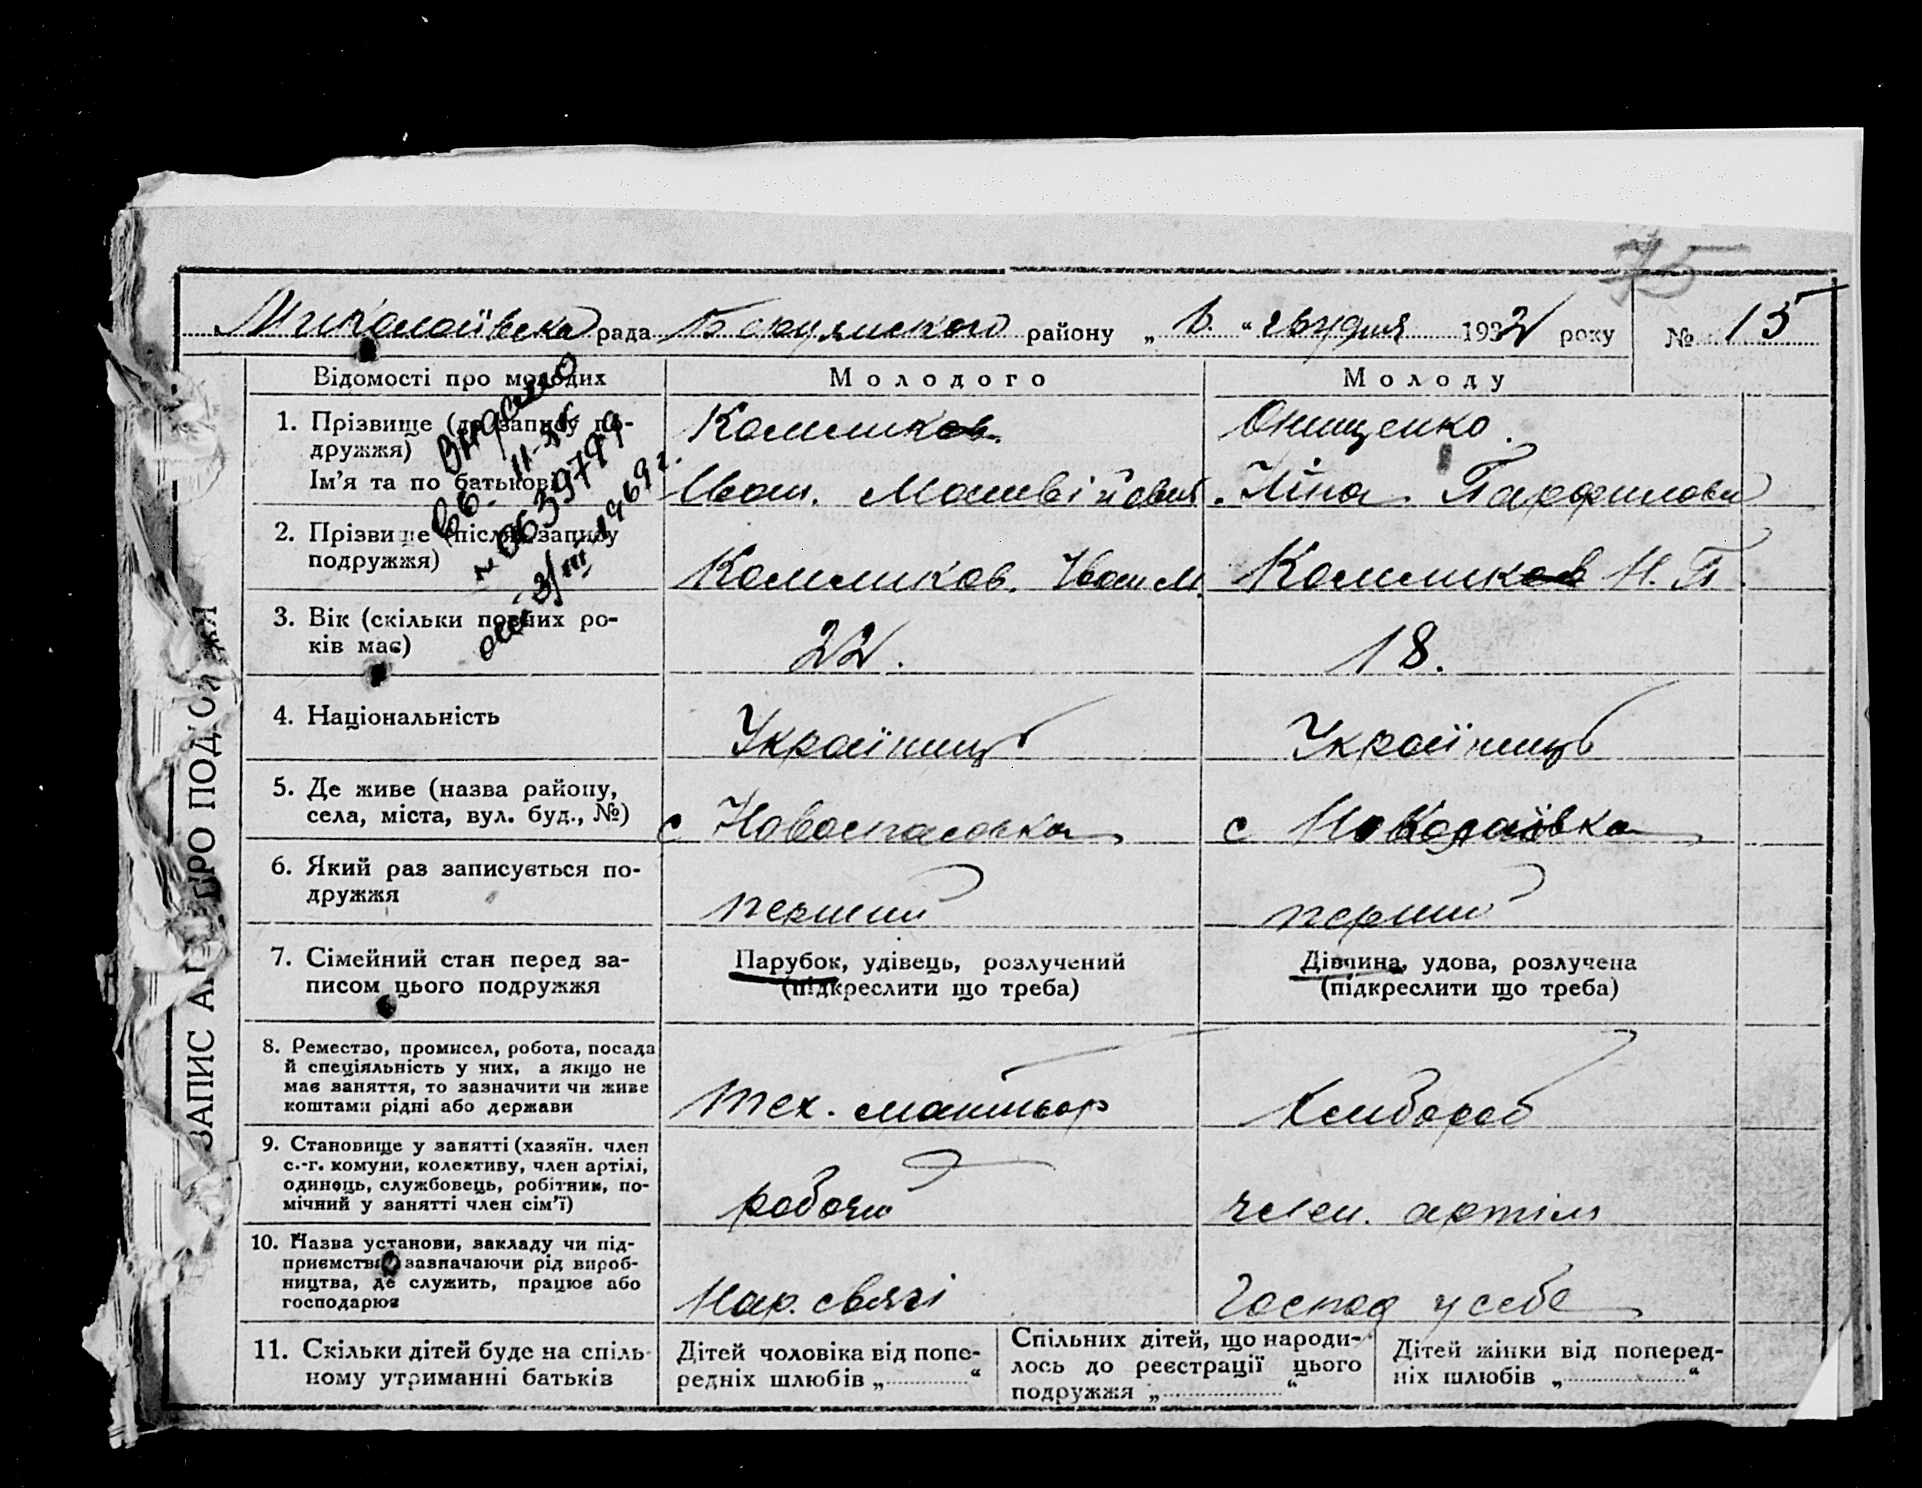 75
Миколаївська рада Бердянського району „ 6. “ грудня 1932 року № 15
Відомості про молодих
Молодого
Молоду
1. Прізвище (до запису по-
дружжя)
Ім'я та по батькові
Калмиков.
Іван. Матвійович.
Онищенко.
Ніна Парфилови
2. Прізвище (після запису
подружжя)
Калмиков. Іван М.
Калмиков Н. П.
3. Вік (скільки повних ро-
ків має)
22.
18.
4. Національність
Українець
Українець
5. Де живе (назва району,
села, міста, вул. буд., №)
с Новоспасовка
с Миколаївка
6. Який раз записується по-
дружжя
перший
перший
7. Сімейний стан перед за-
писом цього подружжя
Парубок, удівець, розлучений
(підкреслити що треба)
Дівчина, удова, розлучена
(підкреслити що треба)
8. Ремество, промисел, робота, посада
й спеціяльність у них, а якщо не
має заняття, то зазначити чи живе
коштами рідні або держави
тех.
Хлибороб
9. Становище у занятті (хазяїн. член
с.-г. комуни, колективу, член артілі,
одинець, службовець, робітник, по-
мічний у занятті член сім'ї)
робочий
член. артіли
10. Назва установи, закладу чи під-
приємства зазначаючи рід вироб-
ництва, де служить, працює або
господарює
Нар. связі
Господ у себе
11. Скільки дітей буде на спіль-
ному утриманні батьків
Дітей чоловіка від попе-
редніх шлюбів „ “
Спільних дітей, що народи-
лось до реєстрації цього
подружжя „ “
Дітей жінки від поперед-
ніх шлюбів „ “
Видано
св. II-
№ 0639799
3/III-1969 г.
ЗАПИС АКТ ПРО ПОДРУЖЖЯ